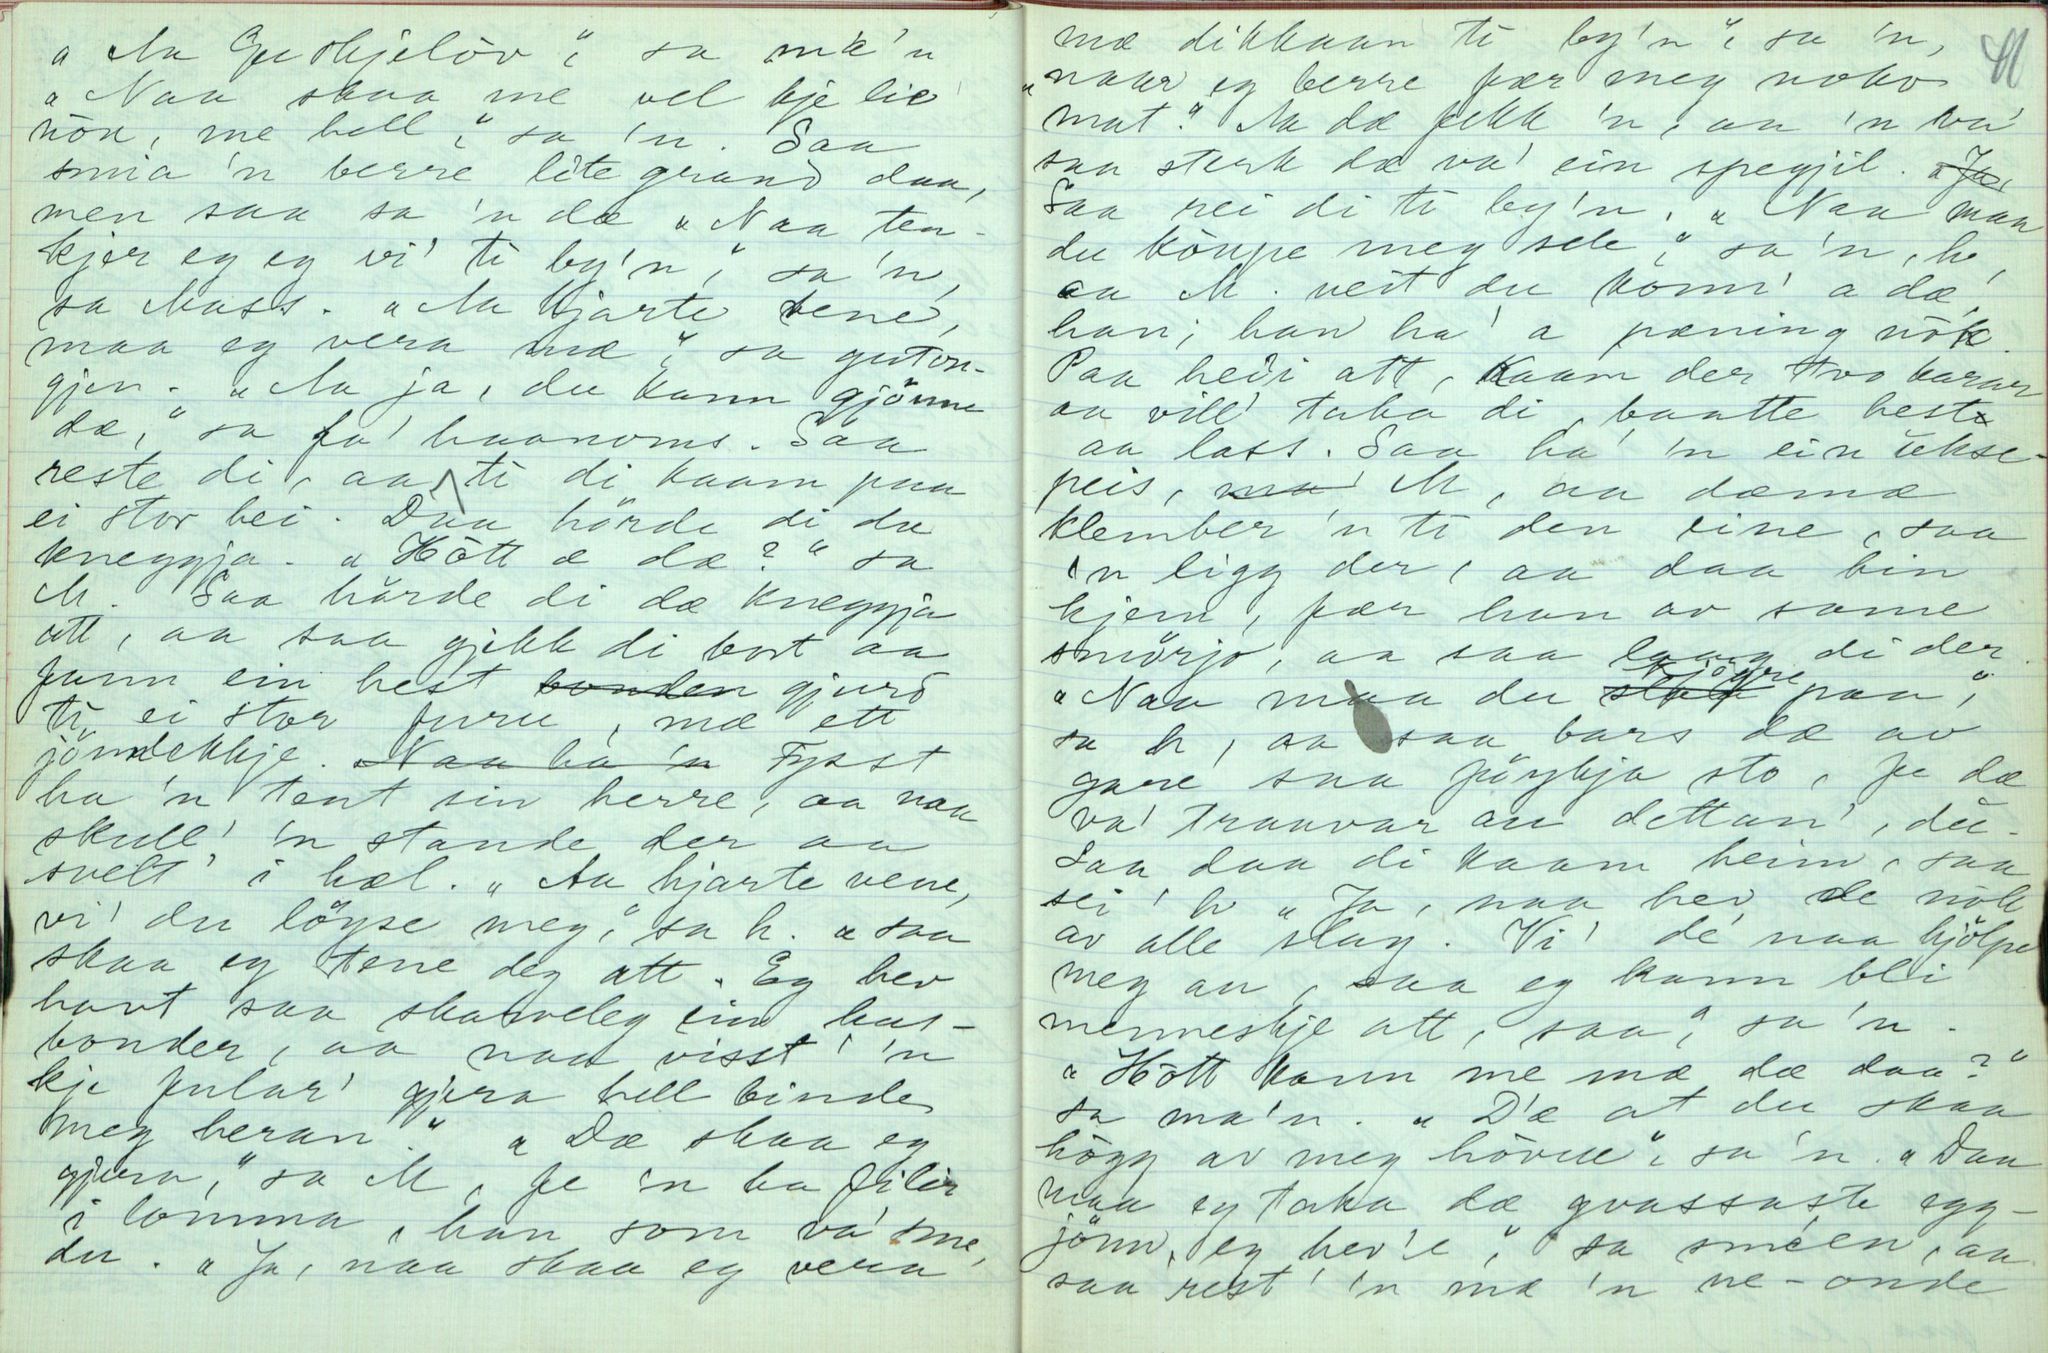 „Aa Gu skjelöv", sa mæ'n
„Naa skaa me vel kje lie
nöa, me hell", sa 'n. Saa
smia 'n berre lite grand daa,
men saa sa 'n dæ „Naa ten-
kjer eg eg vi' ti by'n", sa 'n,
sa Mass. „Aa hjarte vene,
maa eg vera mæ", sa guton-
gjen. „Aa ja, du kann gjönne
dæ", sa fa' haanoms. Saa
reste di, aa ti di kaam paa
ei stor hei. Daa hörde di da
kneggja. „Hött æ dæ?" sa
M. Saa hörde di dæ kneggja
att, aa saa gjekk di bort aa
funn ein hest bonden gjurd
ti ei stor furu, mæ ett
jönndekkje. Naa ha 'n Fysst
ha 'n tent sin herre, aa naa
skull' 'n stande der aa
svelt' i hæl. „Aa hjarte vene,
vi' du löyse meg," sa h. „saa
skaa eg tene deg att. Eg hev
havt saa skarveleg ein hus-
bonder, aa naa visst' 'n
kje fular' gjera hell binde
meg heran." „Dæ skaa eg
gjera," sa M, fe 'n ha filir
i lomma, han som va' sme,
du. „Ja, naa skaa eg vera
mæ dikkaan ti by'n", sa 'n, 41
„naar eg berre fær meg noko
mat." Aa dæ fekk 'n, aa 'n va'
saa sterk dæ va' ein spegjil. „Ja,
Saa rei di ti by'n. „Naa maa
du köupe meg sele," sa 'n, h,
aa M. veit du komm' a dæ,
han; han ha' a pæning nök.
Paa heidi att, kaam der tvo karar
aa vill' taka di, baatte hest
aa lass. Saa ha' 'n ein ökse-
peis, ma' M, aa dæmæ
klember 'n ti den eine, saa
'n ligg der, aa daa hin
kjem, fær han av same
smörjo, aa saa laag di der.
„Naa maa du slaa kjöyre paa",
sa h, aa saa bars dæ av
gare saa föykja sto, fe dæ
va' traavar au dettan', du.
Saa daa di kaam heim, saa
sei' h „Ja, naa hev de nök
av alle slag. Vi' de naa hjölpe
meg au, saa eg kann bli
menneskje att, saa," sa 'n.
„Hött kann me mæ dæ daa?"
sa ma'n. „D'æ at du skaa
högg av meg hövue", sa 'n. „Daa
maa eg taka dæ gvassaste egg-
jönn, eg hev'e", sa sméen, aa
saa rest' 'n mæ 'n ne-onde